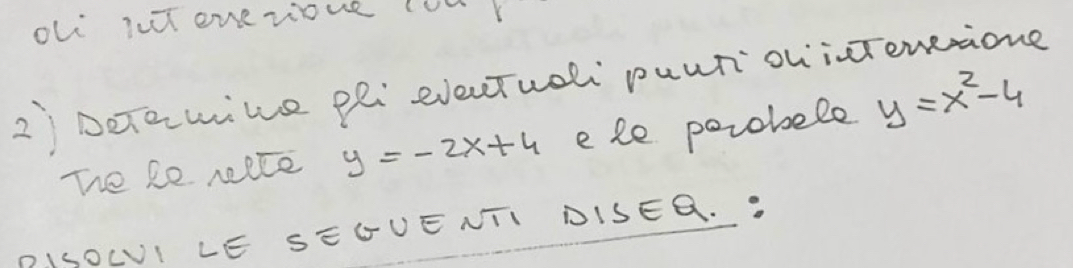 di intersezione con
2) Determina gli eventuali punti di intersezione
Tra la retta y = -2x+4 e la parabola y = x²-4
RISOLVI LE SEGUENTI DISEQ. :